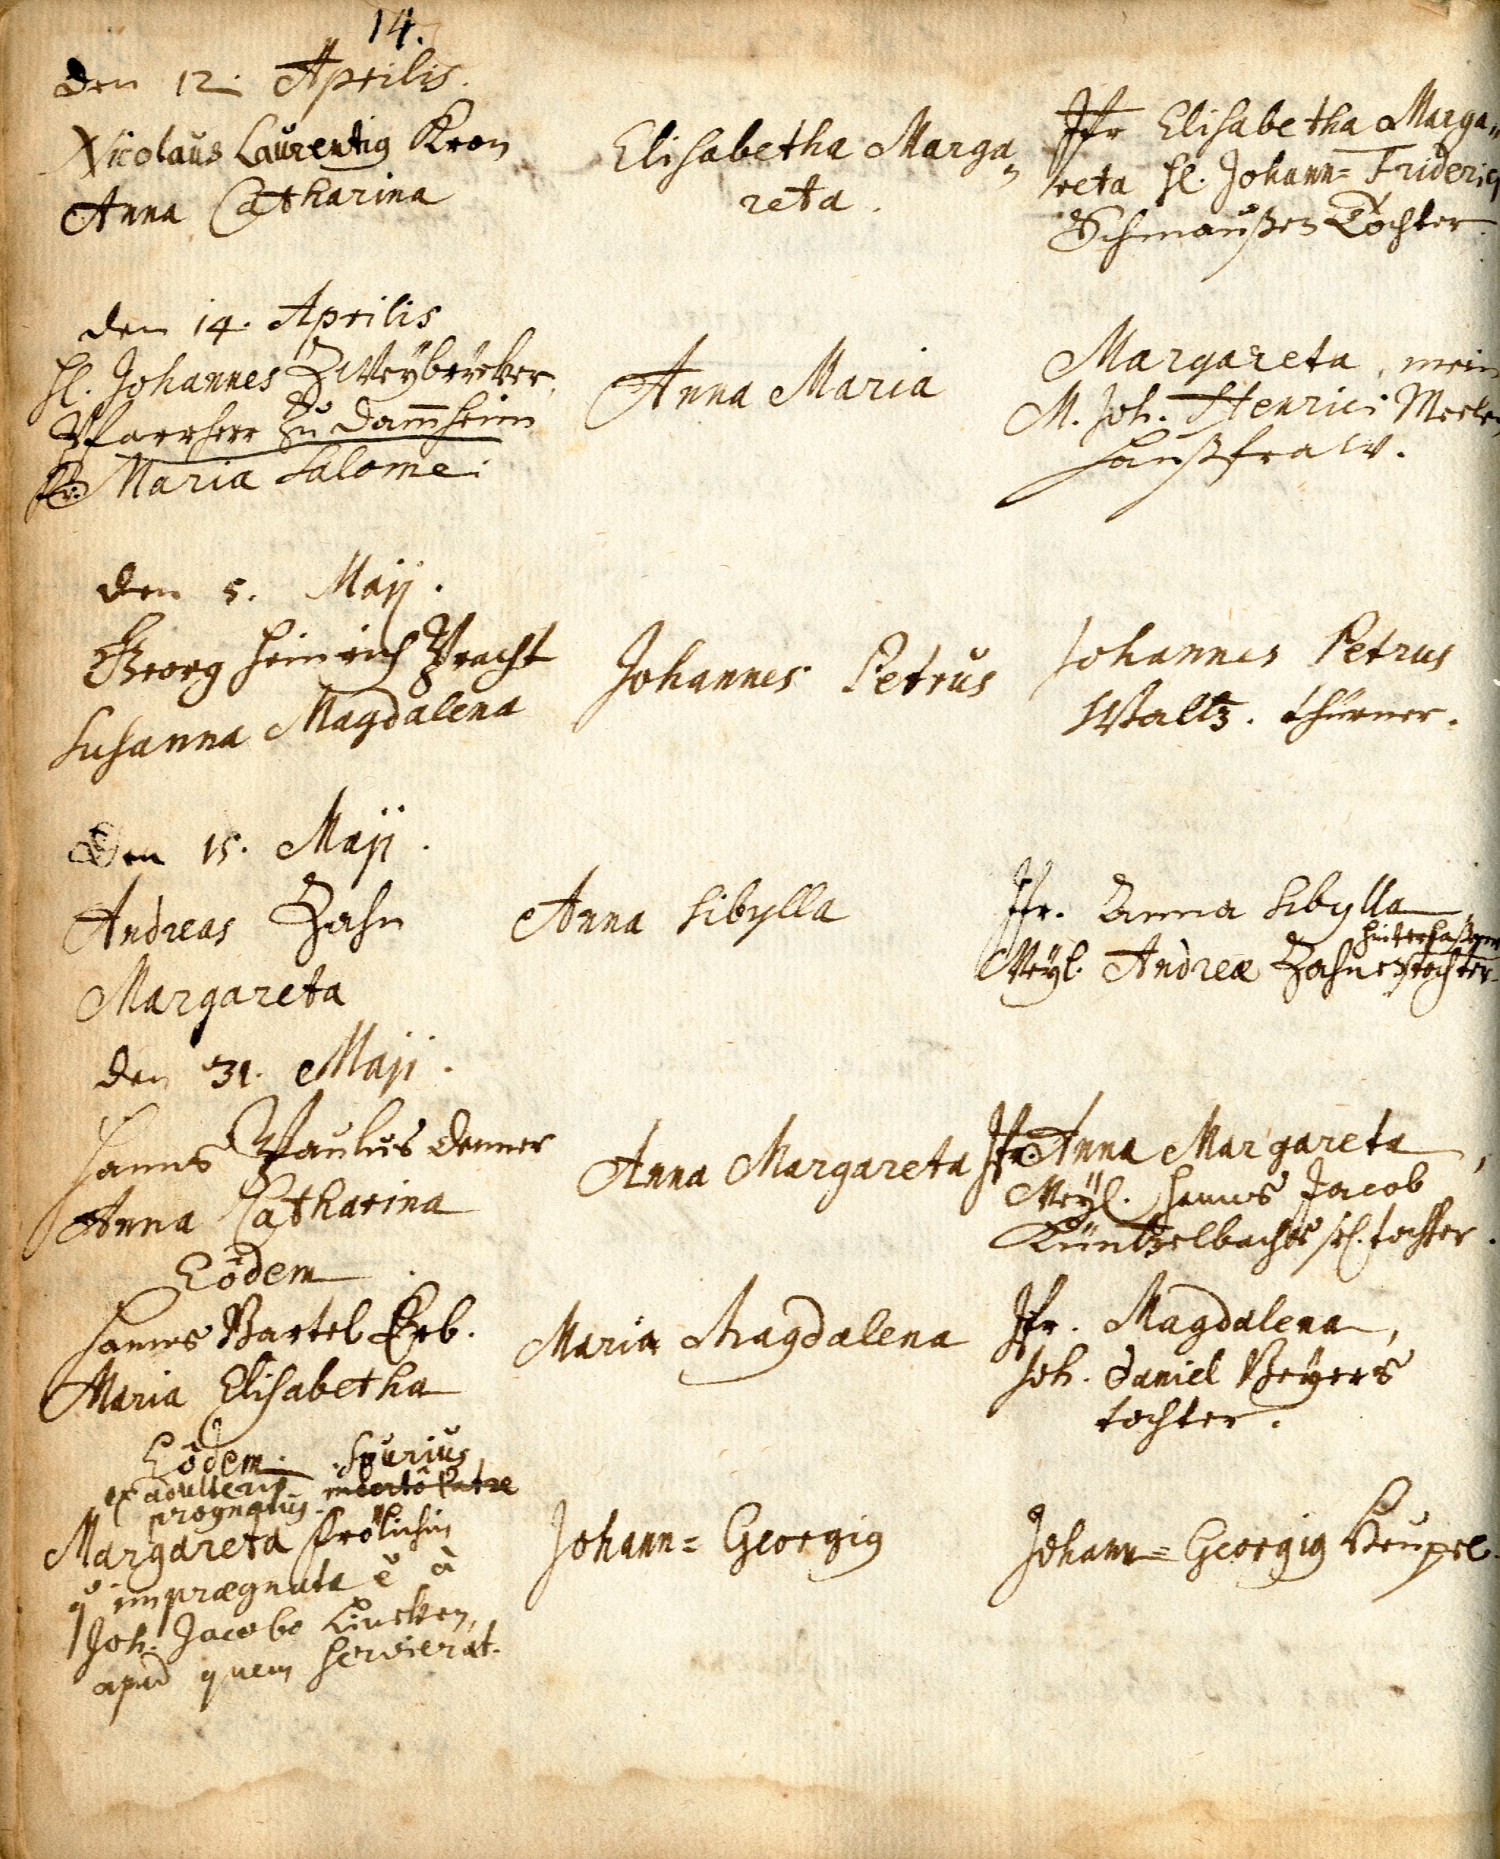 14.
den 12. Aprilis.
Nicolaus Laurentig Kron
Anna Catharina
Elisabetha Marga„
reta.
Jfr Elisabetha Marga„
reta H. Johann= Friderici
Schmaußen Tochter.
den 14. Aprilis
H. Johannes Zweÿbrücker,
Pfarrherr zu Dam̄heim
Fr. Maria Salome.
Anna Maria
Margareta, mein
M. Joh. Henrici
Haußfraw.
den 5. Maji.
Georg Heinrich Pracht
Susanna Magdalena
Johannes Petrus
Johannes Petrus
Waltz. thürner.
Den 15. Maji.
Andreas Zahn
Margareta
Anna Sibylla
Jfr. Anna Sibylla
hinterlaßene
Weyl. Andreæ Zahns tochter.
den 31. Maji.
Hanns Paulus Denner
Anna Catharina
Anna Margareta
Jfr. Anna Margareta,
Weÿl. Hanns Jacob
Küntzelbachs sel. tochter.
Eôdem.
Hanns Bartel Erb.
Maria Elisabetha
Maria Magdalena
Jfr. Magdalena,
Joh. Daniel Beyers
tochter.
Eôdem. Spurius
ex adulterio incertô Patre
prognatus.
Margareta Frölichin
imprægnata ê à
Joh. Jacobo Lincken,
apud quem servierat.
Johann= Georgig
Johann= Georgig Keupel.